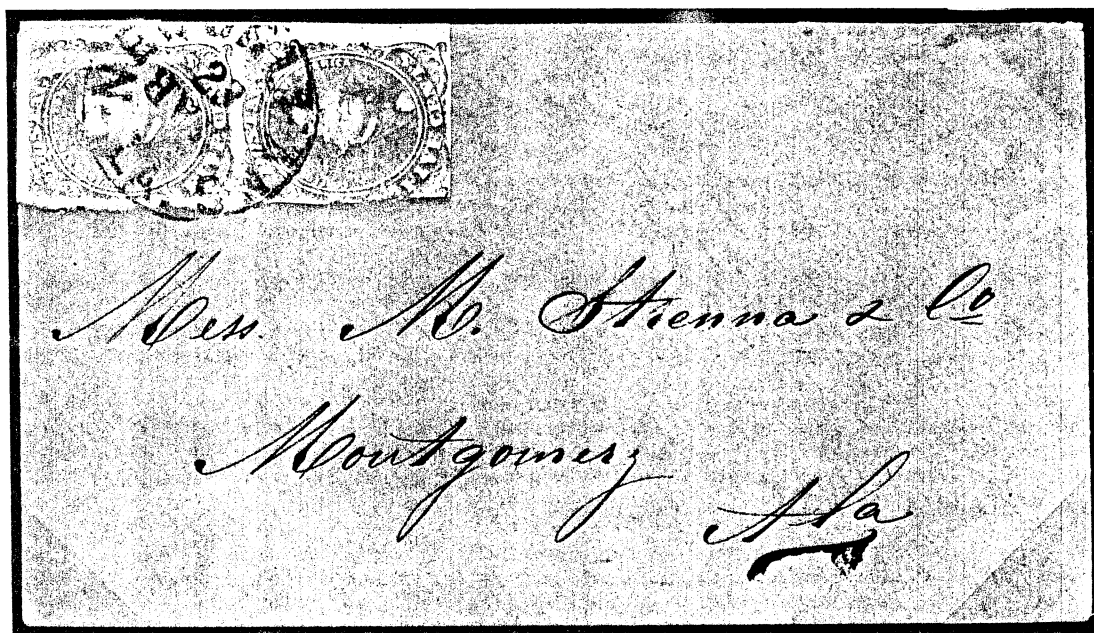 Mess. M. Strenna & Co
Montgomery
Ala